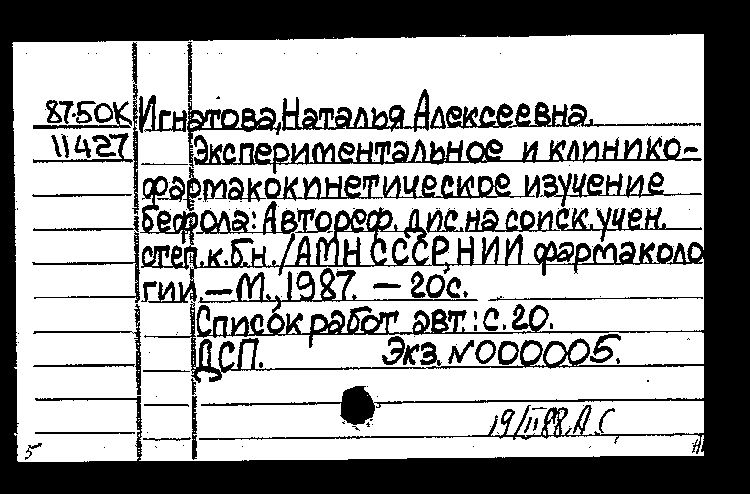 87-50К Игнатова, Наталья Алексеевна.
11427 Экспериментальное и клинико-
фармакокинетическое изучение
бефола: Автореф. дис. на соиск. учен.
степ. к.б.н. /АМН СССР, НИИ фармаколо
гии. — М., 1987. — 20с.
Список работ авт.: с. 20.
ДСП. Экз. №000005.
19/II 88. А С
5